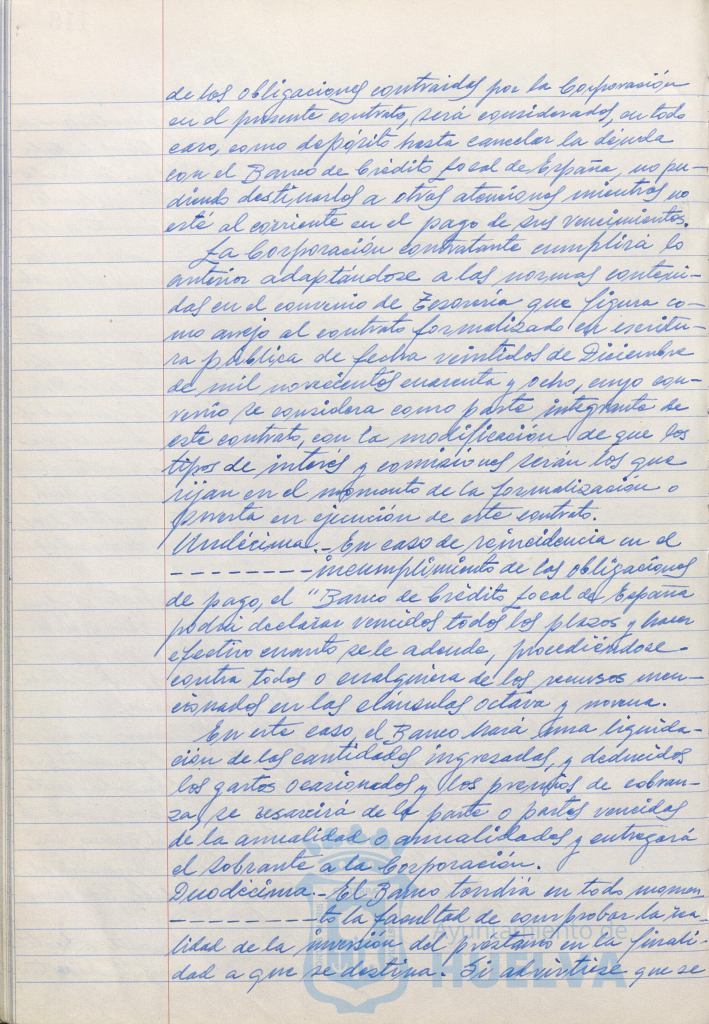 de las obligaciones contraidas por la Corporación
en el presente contrato, será considerados, en todo
caso, como depósito hasta cancelar la deuda
con el Banco de Crédito Local de España, no pu-
diendo destinarlos a otras atenciones mientras no
esté al corriente en el pago de sus vencimientos.
La Corporación contratante cumplirá lo
anterior adaptándose a las normas conteni-
das en el convenio de Tesorería que figura co-
mo anejo al contrato formalizado en escritu-
ra pública de fecha veintidos de Diciembre
de mil novecientos cuarenta y ocho, cuyo con-
venio se considera como parte integrante de
este contrato, con la modificación de que los
tipos de interés y comisiones serán los que
rijan en el momento de la formalización o
puesta en ejecución de este contrato.
Undécima.- En caso de reincidencia en el
- - - - - - - - incumplimiento de las obligaciones
de pago, el "Banco de Crédito Local de España
podrá declarar vencidos todos los plazos y hacer
efectivo cuanto se le adeude, procediéndose
contra todos o cualquiera de los recursos men-
cionados en las cláusulas octava y novena.
En este caso, el Banco hará una liquida-
ción de las cantidades ingresadas, y deducidos
los gastos ocasionados y los premios de cobran-
za, se resarcirá de la parte o partes vencidas
de la anualidad o anualidades y entregará
el sobrante a la Corporación.
Duodécima.- El Banco tendrá en todo momen-
- - - - - - - - to la facultad de comprobar la rea-
lidad de la inversión del préstamo en la finali-
dad a que se destina. Si advirtiese que se
Ayuntamiento de
HUELVA